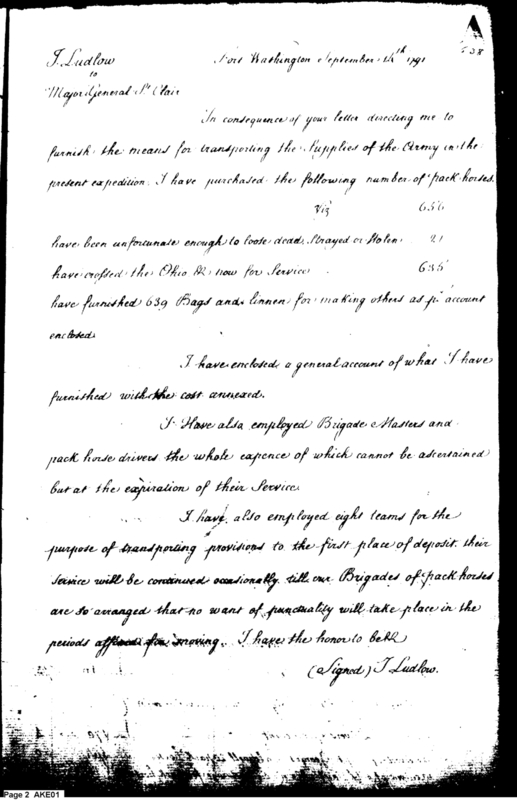 A
638
I. Ludlow
to
Major General St. Clair
Fort Washington September 14th 1791
In consequence of your letter directing me to
furnish the means for transporting the Supplies of the Army in the
present expedition. I have purchased the following number of pack-horses.
Viz 656
have been unfortunate enough to loose dead, Strayed or Stolen 21
have crossed the Ohio & now for Service 635
have furnished 639 Bags and linnen for making others as pr. account
enclosed
I have enclosed a general account of what I have
furnished with the cost annexed.
I Have also employed Brigade Masters and
pack horse drivers the whole expence of which cannot be ascertained
but at the expiration of their Service
I have also employed eight teams for the
purpose of transporting provisions to the first place of deposit. their
service will be continued occasionally till our Brigades of pack horses
are so arranged that no want of punctuality will take place in the
periods for moving. I have the honor to be &
(Signed) I Ludlow.
Page 2 AKE01